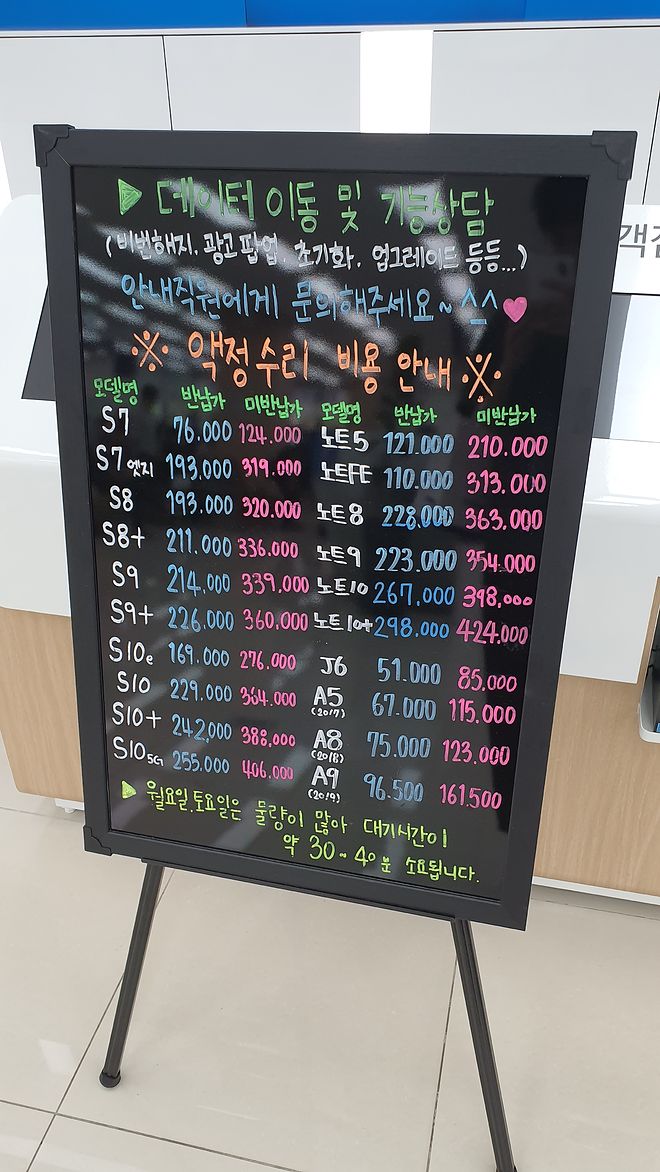 ▶ 데이터 이동 및 기능상담
(비번해지. 광고 팝업. 초기화. 업그레이드 등등...)
안내직원에게 문의해주세요~ ^^ ♥
※ 액정수리 비용 안내 ※
모델명 반납가 미반납가 모델명 반납가 미반납가
S7 76.000 124.000 노트5 121.000 210.000
S7 엣지 193.000 319.000 노트FE 110.000 313.000
S8 193.000 320.000 노트8 228.000 363.000
S8+ 211.000 336.000 노트9 223.000 354.000
S9 214.000 339.000 노트10 267.000 398.000
S9+ 226.000 360.000 노트10+ 298.000 424.000
S10e 169.000 276.000 J6 51.000 85.000
S10 229.000 364.000 A5 (2017) 67.000 115.000
S10+ 242.000 388.000 A8 (2018) 75.000 123.000
S10 5G 255.000 406.000 A9 (2019) 96.500 161.500
▶ 월요일.토요일은 물량이 많아 대기시간이
약 30~40분 소요됩니다.
객